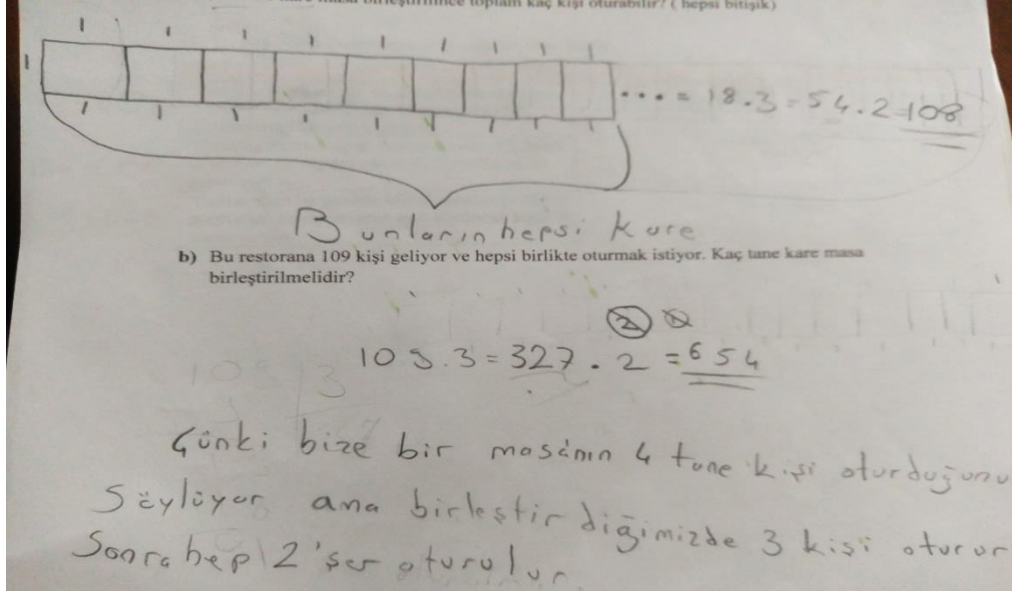 kare masa birleştirilince toplam kaç kişi oturabilir? ( hepsi bitişik)
... = 18.3 = 54.2 108
Bunların hepsi kare
b) Bu restorana 109 kişi geliyor ve hepsi birlikte oturmak istiyor. Kaç tane kare masa
birleştirilmelidir?
109.3 = 327 . 2 = 654
Çünki bize bir masanın 4 tane kişi oturduğunu
Söylüyor ama birleştirdiğimizde 3 kişi oturur
Sonra hep 2'şer oturulur